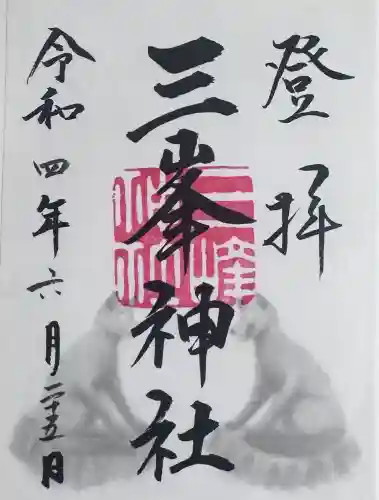 登拝
三峯神社
令和四年六月二十五日